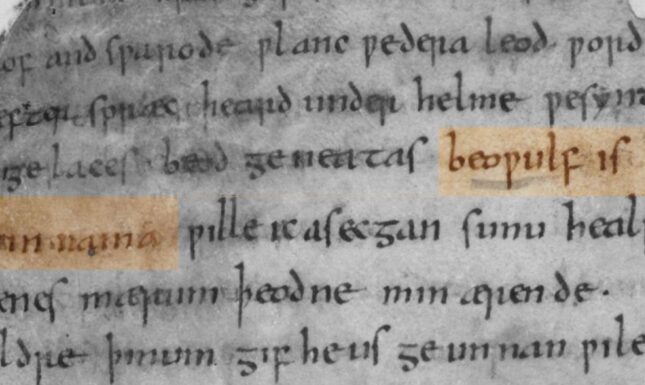 of andsƿarode ƿlanc ƿedera leod ƿord
efter spræc heard under helme ƿesynt
gelaces beod geneatas beoƿulf is
in nama ƿille ic asecgan sunu healf
enes mærum þeodne min ærende.
ldre þinum gif he us geunnan ƿile